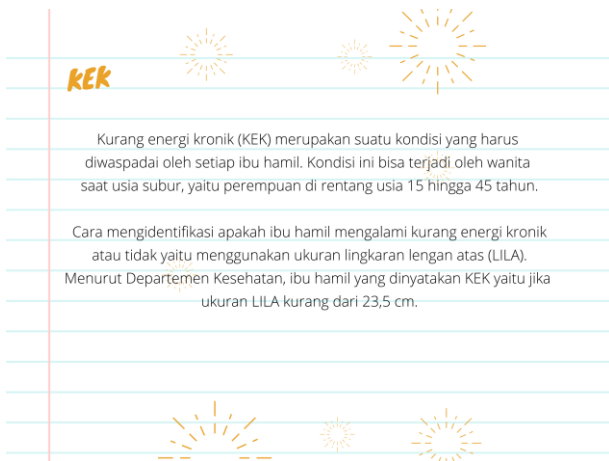 KEK
Kurang energi kronik (KEK) merupakan suatu kondisi yang harus
diwaspadai oleh setiap ibu hamil. Kondisi ini bisa terjadi oleh wanita
saat usia subur, yaitu perempuan di rentang usia 15 hingga 45 tahun.
Cara mengidentifikasi apakah ibu hamil mengalami kurang energi kronik
atau tidak yaitu menggunakan ukuran lingkaran lengan atas (LILA).
Menurut Departemen Kesehatan, ibu hamil yang dinyatakan KEK yaitu jika
ukuran LILA kurang dari 23,5 cm.